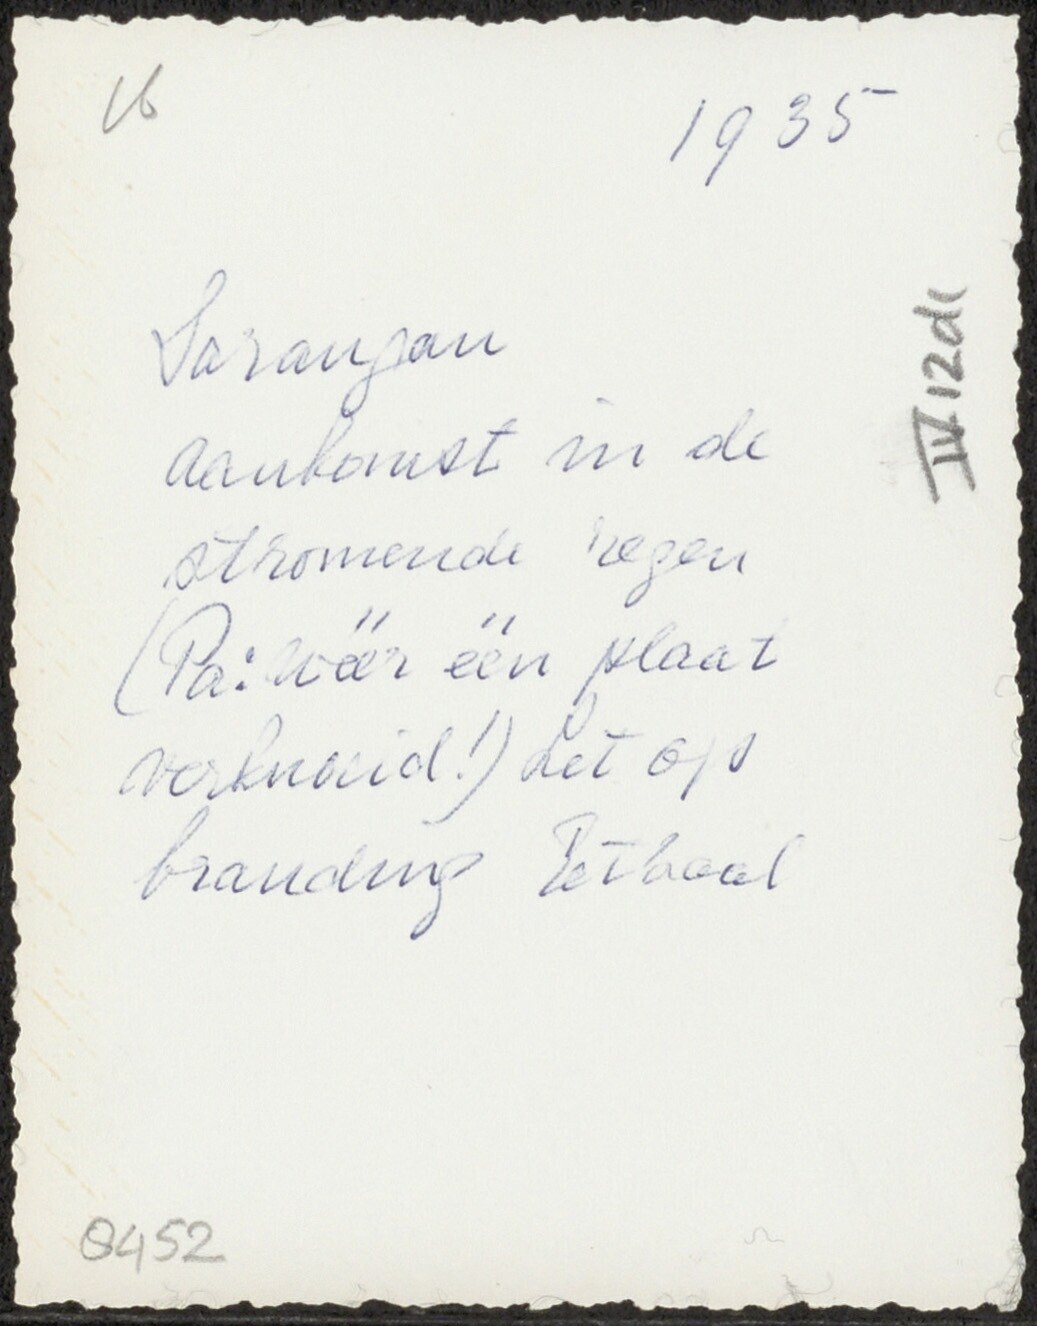 16
1935
Sarangan
aankomst in de
stromende regen
(Pa: wéér één plaat
verknoeid!) Let op
branding
IV 12d1
0452